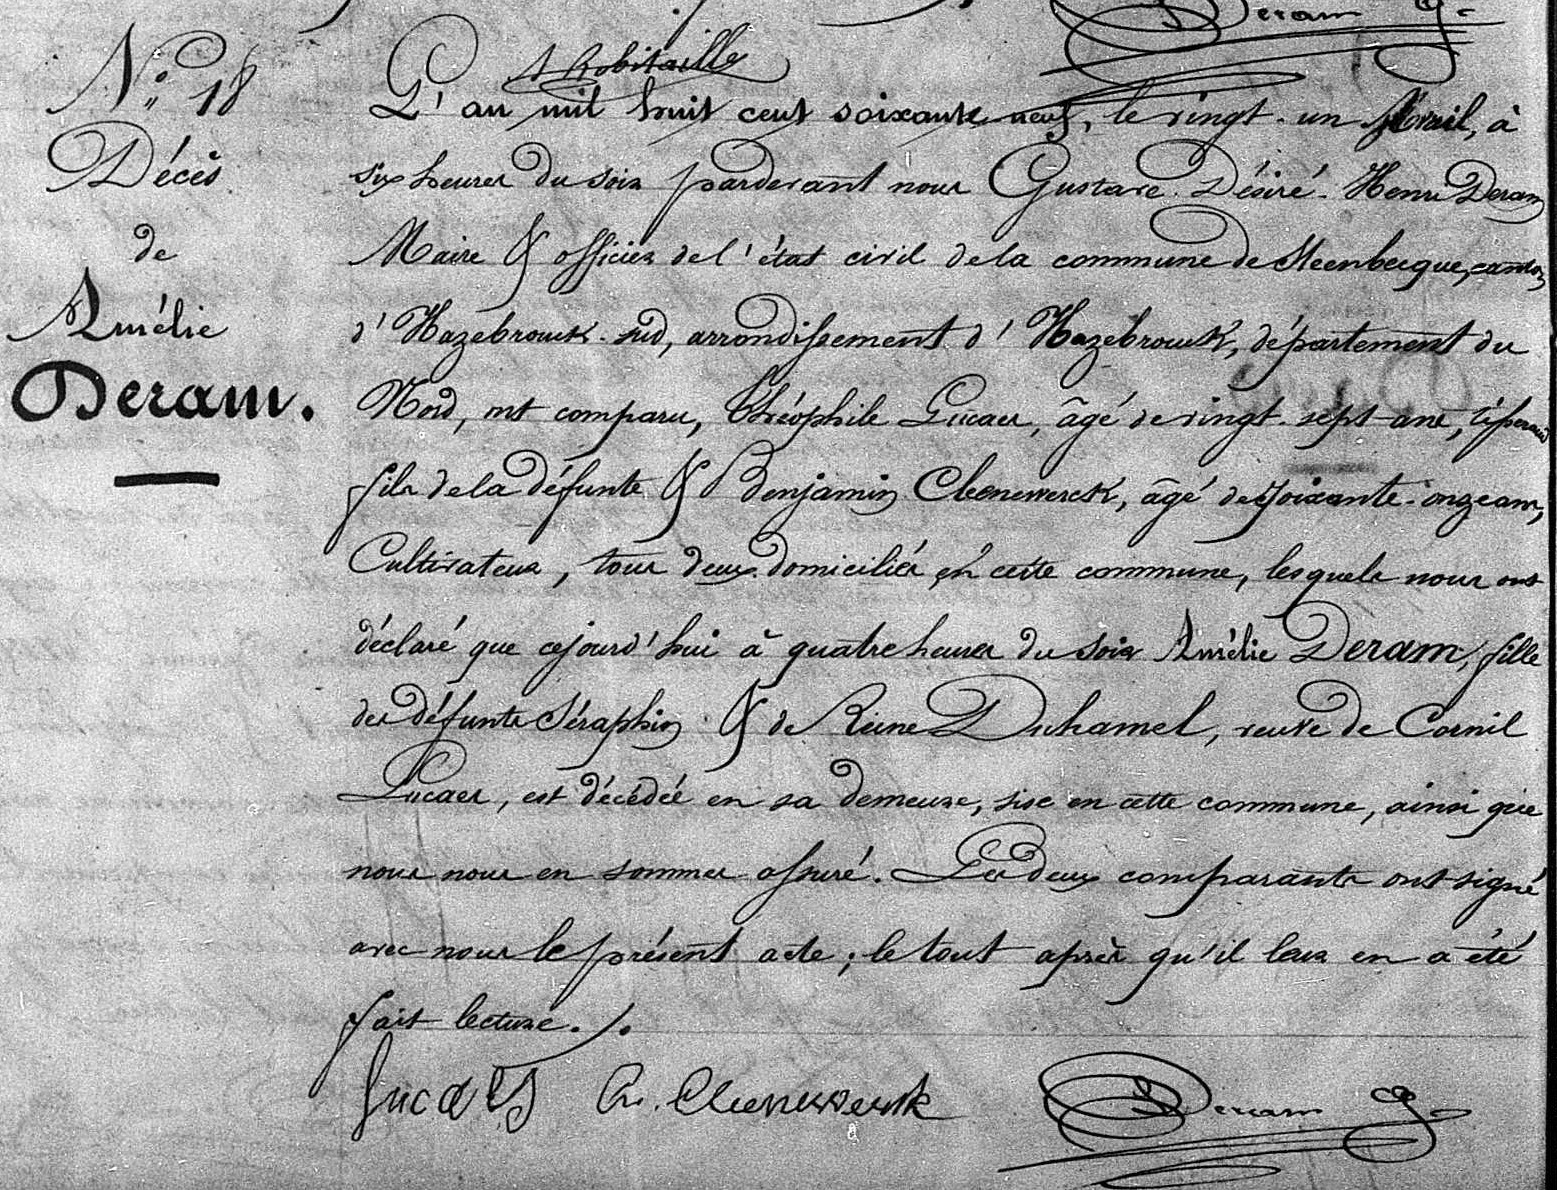 Deram G.
A Robitaille
N° 18
Décès
de
Amélie
Deram.
L'an mil huit cent soixante neuf, le vingt-un Avril, à
six heures du soir pardevant nous Gustave Désiré Henri Deram
Maire & officier de l'état civil de la commune de Steenbecque, canton
d'Hazebrouck-sud, arrondissement d'Hazebrouck, département du
Nord, ont comparu, Théophile Lucaes, âgé de vingt-sept ans, tisserand
fils de la défunte & Benjamin Cleenewerck, âgé de soixante-onze ans,
Cultivateur, tous deux domiciliés en cette commune, lesquels nous ont
déclaré que cejourd'hui à quatre heures du soir Amélie Deram, fille
des défunts Séraphin & de Reine Duhamel, veuve de Cornil
Lucaes, est décédée en sa demeure, sise en cette commune, ainsi que
nous nous en sommes assuré. Les deux comparants ont signé
avec nous le présent acte ; le tout après qu'il leur en a été
fait lecture ./.
Lucaes Cleenewerck Deram G.